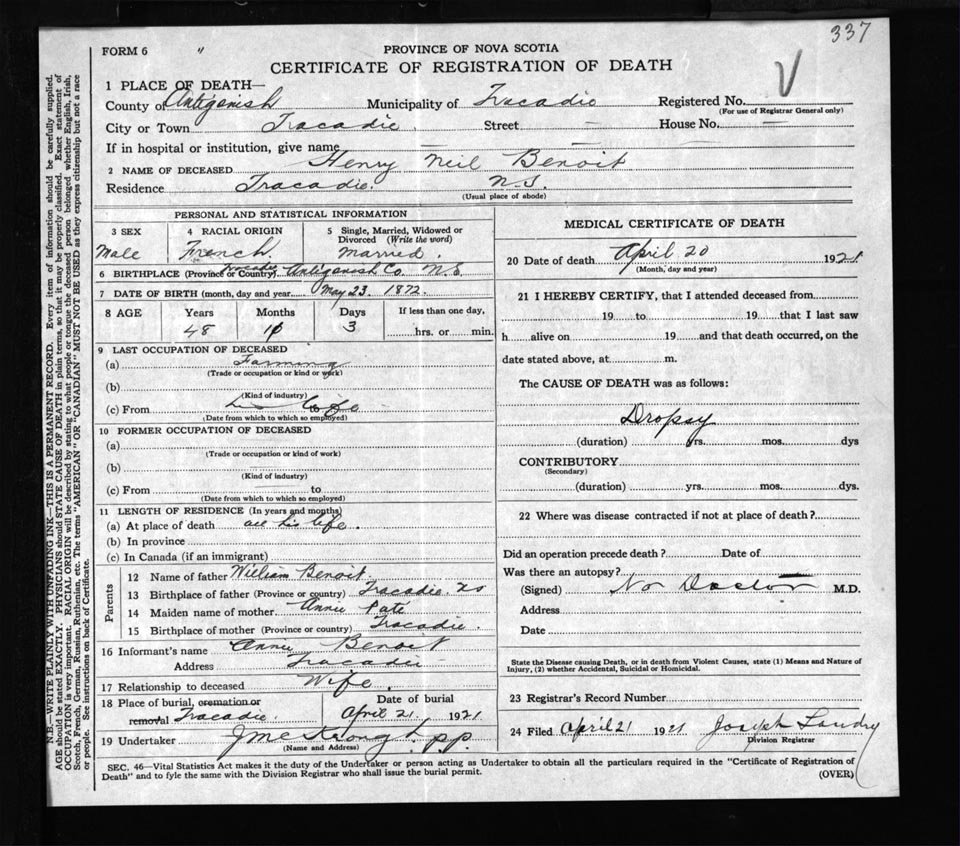 337
FORM 6 "
PROVINCE OF NOVA SCOTIA
CERTIFICATE OF REGISTRATION OF DEATH
1 PLACE OF DEATH—
County of Antigonish Municipality of Tracadie Registered No. V
(For use of Registrar General only)
City or Town Tracadie. Street — House No. —
If in hospital or institution, give name — —
2 NAME OF DECEASED Henry Neil Benoit
Residence Tracadie. N.S.
(Usual place of abode)
PERSONAL AND STATISTICAL INFORMATION
3 SEX 4 RACIAL ORIGIN 5 Single, Married, Widowed or Divorced (Write the word)
Male French. Married.
6 BIRTHPLACE (Province or Country) Tracadie Antigonish Co. N.S.
7 DATE OF BIRTH (month, day and year) May 23. 1872.
8 AGE Years Months Days If less than one day,
48 3 hrs. or min.
9 LAST OCCUPATION OF DECEASED
(a) Farming
(Trade or occupation or kind or work)
(b)
(Kind of industry)
(c) From to life
(Date from which to which so employed)
10 FORMER OCCUPATION OF DECEASED
(a)
(Trade or occupation or kind of work)
(b)
(Kind of industry)
(c) From to
(Date from which to which so employed)
11 LENGTH OF RESIDENCE (In years and months)
(a) At place of death all his life.
(b) In province
(c) In Canada (if an immigrant)
Parents
12 Name of father William Benoit.
13 Birthplace of father (Province or country) Tracadie. NS
14 Maiden name of mother Annie Pate
15 Birthplace of mother (Province or country) Tracadie.
16 Informant's name Annie Benoit
Address Tracadie
17 Relationship to deceased Wife.
18 Place of burial, cremation or removal Tracadie. Date of burial April 21, 1921
19 Undertaker P.P.
(Name and Address)
MEDICAL CERTIFICATE OF DEATH
20 Date of death April 20 1921
(Month, day and year)
21 I HEREBY CERTIFY, that I attended deceased from
19 to 19 that I last saw
h alive on 19 and that death occurred, on the
date stated above, at m.
The CAUSE OF DEATH was as follows:
Dropsy
(duration) yrs. mos. dys
CONTRIBUTORY
(Secondary)
(duration) yrs. mos. dys.
22 Where was disease contracted if not at place of death?
Did an operation precede death? Date of
Was there an autopsy?
(Signed) No Doctor M.D.
Address
Date
State the Disease causing Death, or in death from Violent Causes, state (1) Means and Nature of
Injury, (2) whether Accidental, Suicidal or Homicidal.
23 Registrar's Record Number
24 Filed April 21 1921 Joseph Landry
Division Registrar
SEC. 46—Vital Statistics Act makes it the duty of the Undertaker or person acting as Undertaker to obtain all the particulars required in the "Certificate of Registration of
Death" and to fyle the same with the Division Registrar who shall issue the burial permit. (OVER)
N.B.—WRITE PLAINLY WITH UNFADING INK—THIS IS A PERMANENT RECORD. Every item of information should be carefully supplied.
AGE should be stated EXACTLY. PHYSICIANS should STATE CAUSE OF DEATH in plain terms, so that it may be properly classified. Exact statement of
OCCUPATION is very important. RACIAL ORIGIN will be described by stating to what people or tongue the deceased person belonged whether English, Irish,
Scotch, French, German, Russian, Ruthenian, etc. The terms "AMERICAN" OR "CANADIAN" MUST NOT BE USED as they express citizenship but not a race
or people. See instructions on back of Certificate.